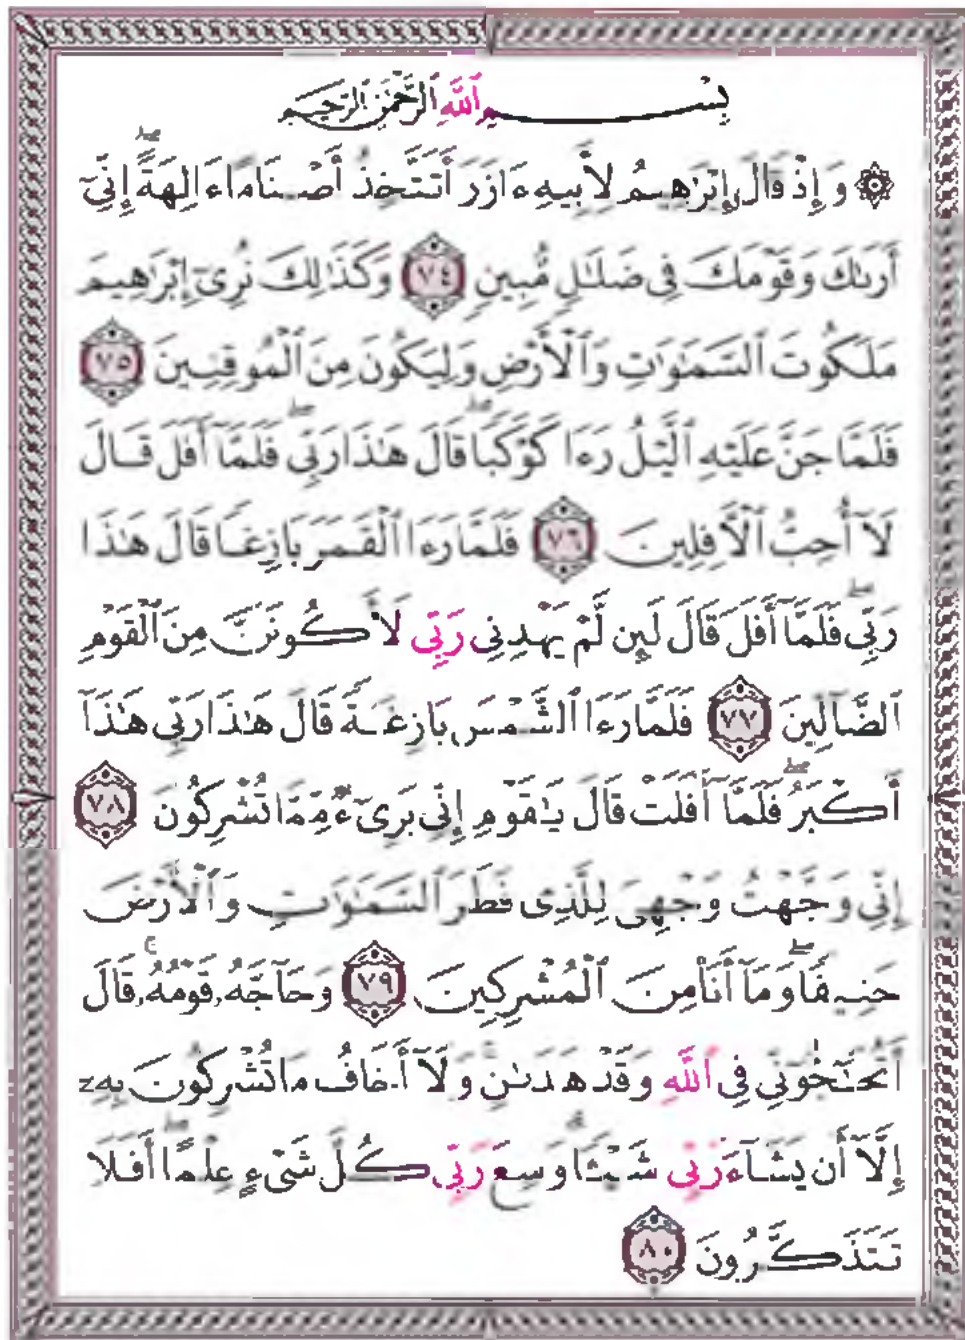 بِسْمِ ٱللَّهِ ٱلرَّحْمَٰنِ ٱلرَّحِيمِ
۞ وَإِذْ قَالَ إِبْرَٰهِيمُ لِأَبِيهِ ءَازَرَ أَتَتَّخِذُ أَصْنَامًا ءَالِهَةً ۖ إِنِّىٓ
أَرَىٰكَ وَقَوْمَكَ فِى ضَلَٰلٍ مُّبِينٍ ٧٤ وَكَذَٰلِكَ نُرِىٓ إِبْرَٰهِيمَ
مَلَكُوتَ ٱلسَّمَٰوَٰتِ وَٱلْأَرْضِ وَلِيَكُونَ مِنَ ٱلْمُوقِنِينَ ٧٥
فَلَمَّا جَنَّ عَلَيْهِ ٱلَّيْلُ رَءَا كَوْكَبًا ۖ قَالَ هَٰذَا رَبِّى ۖ فَلَمَّآ أَفَلَ قَالَ
لَآ أُحِبُّ ٱلْـَٔافِلِينَ ٧٦ فَلَمَّا رَءَا ٱلْقَمَرَ بَازِغًا قَالَ هَٰذَا
رَبِّى ۖ فَلَمَّآ أَفَلَ قَالَ لَئِن لَّمْ يَهْدِنِى رَبِّى لَأَكُونَنَّ مِنَ ٱلْقَوْمِ
ٱلضَّآلِّينَ ٧٧ فَلَمَّا رَءَا ٱلشَّمْسَ بَازِغَةً قَالَ هَٰذَا رَبِّى هَٰذَآ
أَكْبَرُ ۖ فَلَمَّآ أَفَلَتْ قَالَ يَٰقَوْمِ إِنِّى بَرِىٓءٌ مِّمَّا تُشْرِكُونَ ٧٨
إِنِّى وَجَّهْتُ وَجْهِىَ لِلَّذِى فَطَرَ ٱلسَّمَٰوَٰتِ وَٱلْأَرْضَ
حَنِيفًا ۖ وَمَآ أَنَا۠ مِنَ ٱلْمُشْرِكِينَ ٧٩ وَحَآجَّهُۥ قَوْمُهُۥ ۚ قَالَ
أَتُحَٰٓجُّوٓنِّى فِى ٱللَّهِ وَقَدْ هَدَىٰنِ ۚ وَلَآ أَخَافُ مَا تُشْرِكُونَ بِهِۦٓ
إِلَّآ أَن يَشَآءَ رَبِّى شَيْـًٔا ۗ وَسِعَ رَبِّى كُلَّ شَىْءٍ عِلْمًا ۗ أَفَلَا
تَتَذَكَّرُونَ ٨٠